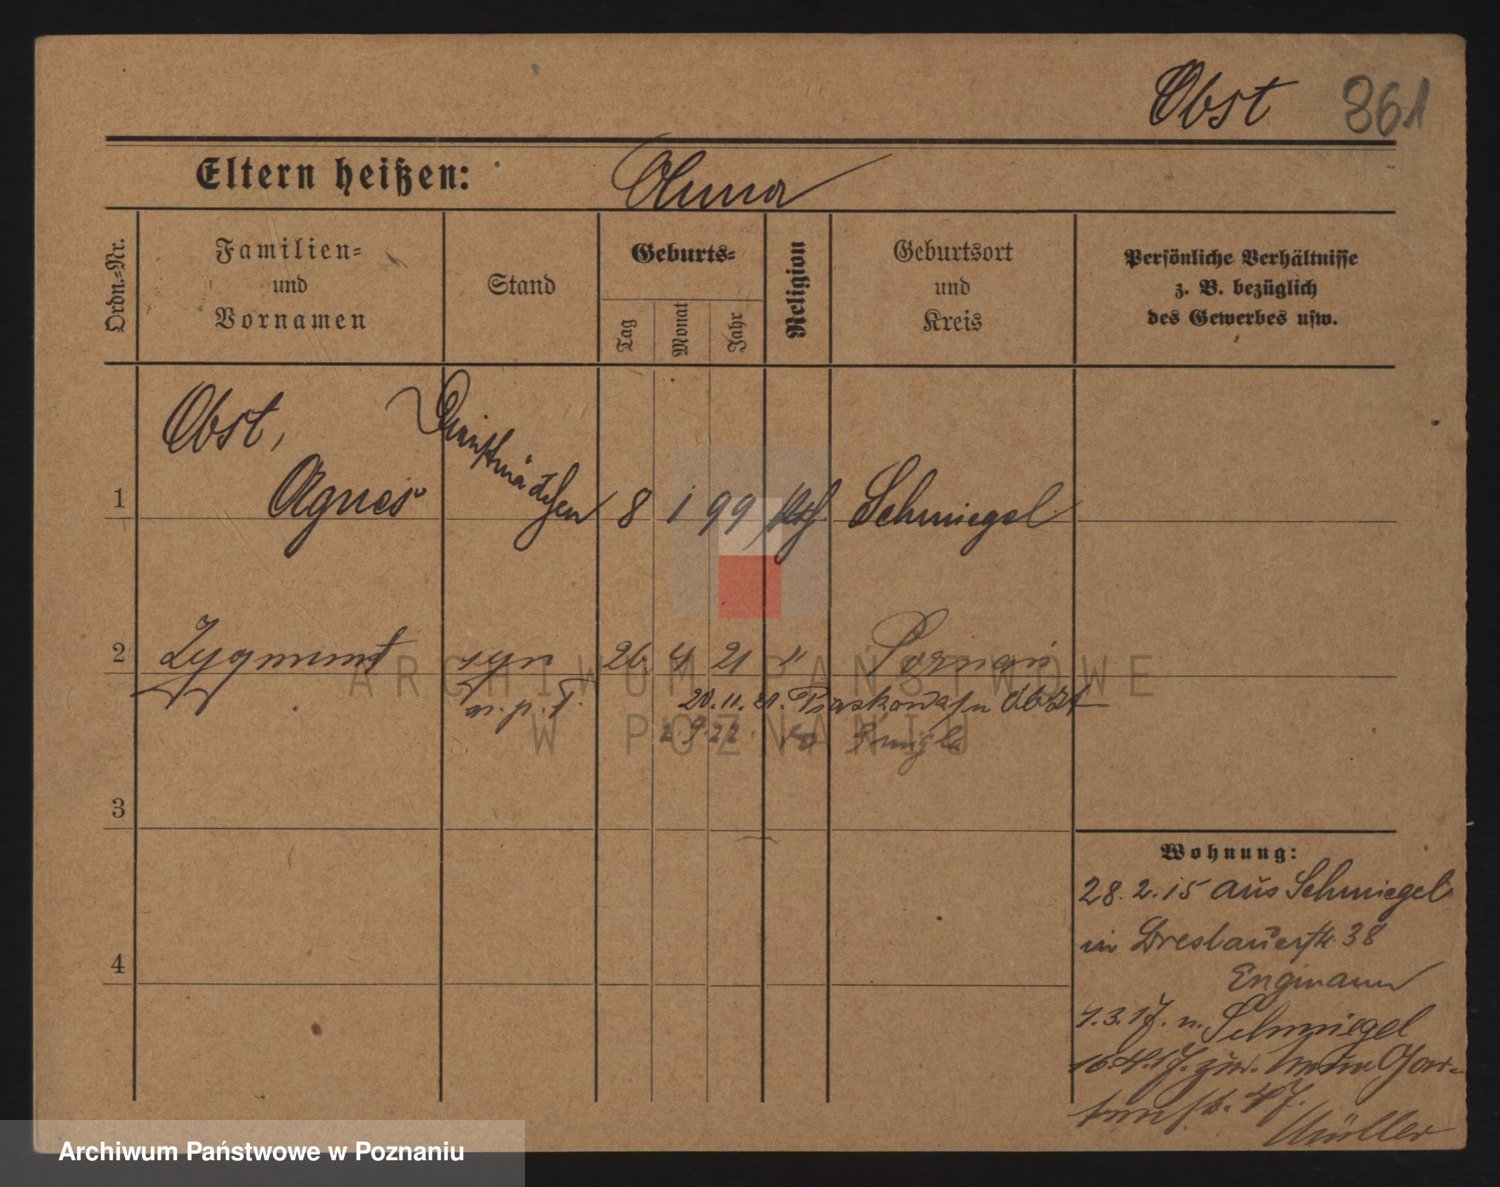 Obst 861
Eltern heißen:
Ordn.-Nr.
Familien-
und
Vornamen
Stand
Geburts-
Tag
Monat
Jahr
Religion
Geburtsort
und
Kreis
Persönliche Verhältnisse
z. B. bezüglich
des Gewerbes usw.
Obst,
Dienstmädchen
1 Agnes 8 1 99 kth. Schmiegel
2 Zygmunt syn 26 4 21 " Poznań
ARCHIWUM PAŃSTWOWE
20.11.21.
W POZNANIU
2.9.22.
3
Wohnung:
28.2.15 aus Schmiegel
in Breslauerstr. 38
4
Engmann
1.3.17. n. Schmiegel
16.4.17. zur.
47.
Müller
Archiwum Państwowe w Poznaniu